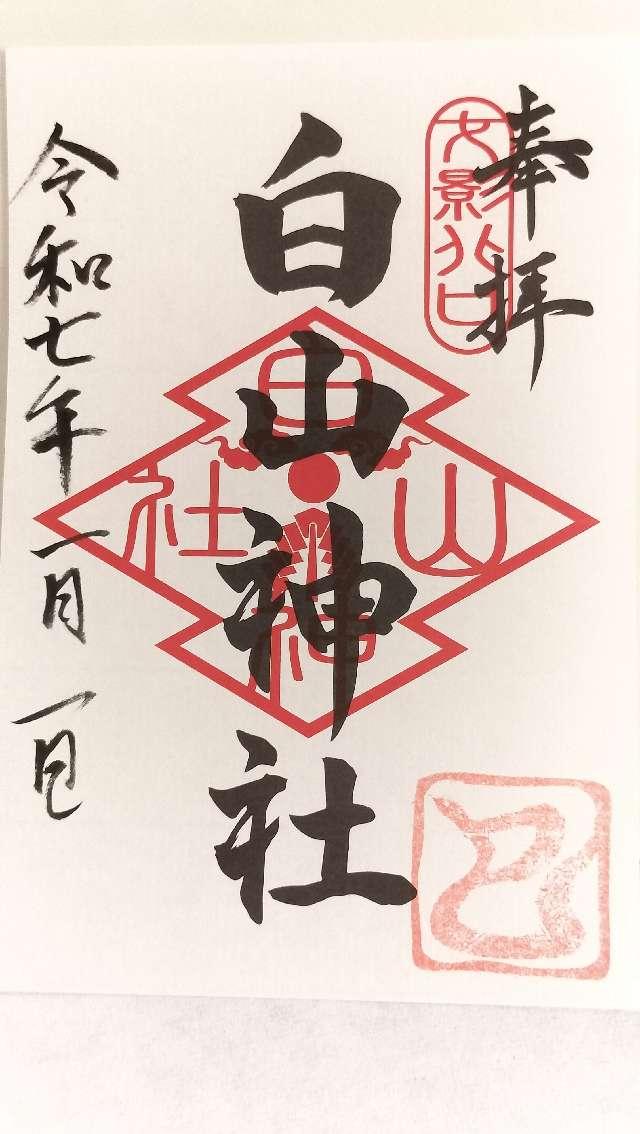 奉拝
女影八口
白山神社
白山神社
令和七年一月一日
巳